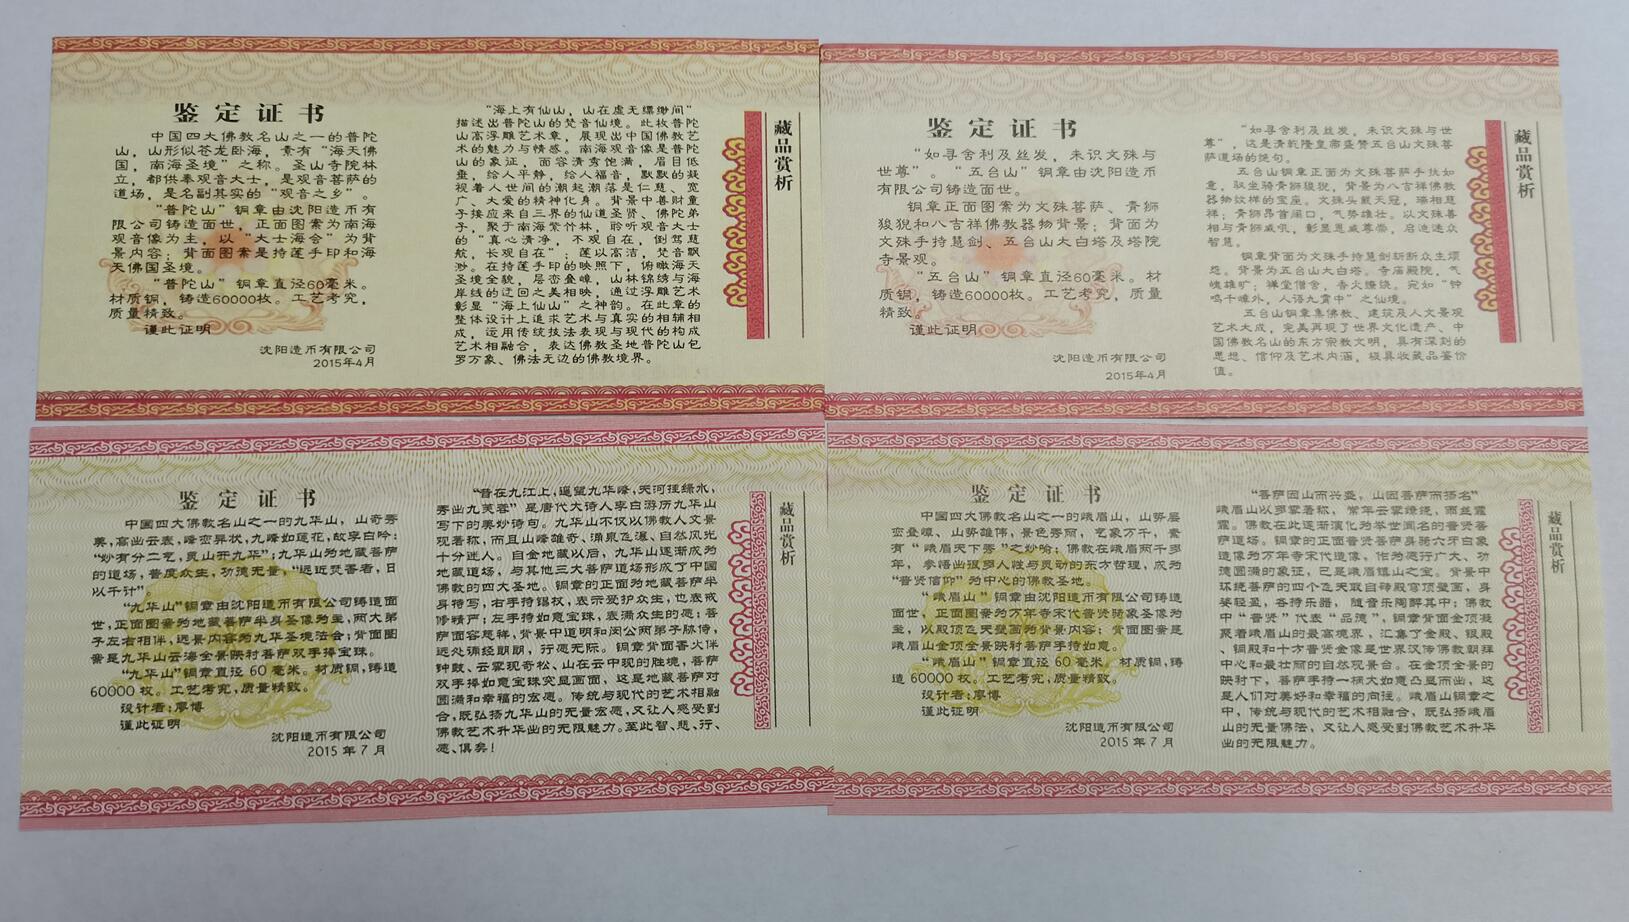 鉴定证书
中国四大佛教名山之一的普陀
山，山形似苍龙卧海，素有“海天佛
国，南海圣境”之称。圣山寺院林
立，都供奉观音大士，是观音菩萨的
道场，是名副其实的“观音之乡”。
“普陀山”铜章由沈阳造币有
限公司铸造面世，正面图案为南海
观音像为主，以“大士海会”为背
景内容；背面图案是持莲手印和海
天佛国圣境。
“普陀山”铜章直径60毫米。
材质铜，铸造60000枚。工艺考究，
质量精致。
谨此证明
沈阳造币有限公司
2015年4月
“海上有仙山，山在虚无缥缈间”
描述出普陀山的梵音仙境。此枚普陀
山高浮雕艺术章，展现出中国佛教艺
术的魅力与情感。南海观音像是普陀
山的象征，面容清秀饱满，眉目低
垂，给人平静，给人福音，默默的凝
视着人世间的潮起潮落是仁慈、宽
广、大爱的精神化身。背景中善财童
子接应来自三界的仙道圣贤、佛陀弟
子，聚于南海紫竹林，聆听观音大士
的“真心清净，不观自在，倒驾慈
航，长观自在”；莲以高洁，梵音飘
渺。在持莲手印的映照下，俯瞰海天
圣境全貌，层峦叠嶂，山林锦绣与海
岸线的迂回之美相映，通过浮雕艺术
彰显“海上仙山”之神韵。在此章的
整体设计上追求艺术与真实的相辅相
成，运用传统技法表现与现代的构成
艺术相融合，表达佛教圣地普陀山包
罗万象、佛法无边的佛教境界。
藏品赏析
鉴定证书
“如寻舍利及丝发，未识文殊与
世尊”。“五台山”铜章由沈阳造币
有限公司铸造面世。
铜章正面图案为文殊菩萨、青狮
狻猊和八吉祥佛教器物背景；背面为
文殊手持慧剑、五台山大白塔及塔院
寺景观。
“五台山”铜章直径60毫米。材
质铜，铸造60000枚。工艺考究，质量
精致。
谨此证明
沈阳造币有限公司
2015年4月
“如寻舍利及丝发，未识文殊与世
尊”，这是清乾隆皇帝盛赞五台山文殊菩
萨道场的绝句。
五台山铜章正面为文殊菩萨手扶如
意，驭坐骑青狮狻猊，背景为八吉祥佛教
器物纹样的宝座。文殊头戴天冠，瑞相慈
祥；青狮昂首阔口，气势雄壮。以文殊善
相与青狮威吼，彰显恩威尊崇，启迪迷众
智慧。
铜章背面为文殊手持慧剑斩断众生烦
恼。背景为五台山大白塔。寺庙殿院，气
魄雄旷；禅堂僧舍，香火缭绕。宛如“钟
鸣千嶂外，人语九霄中”之仙境。
五台山铜章集佛教、建筑及人文景观
艺术大成，完美再现了世界文化遗产、中
国佛教名山的东方宗教文明，具有深刻的
思想、信仰及艺术内涵，极具收藏品鉴价
值。
藏品赏析
鉴定证书
中国四大佛教名山之一的九华山，山奇秀
美，高出云表，峰峦异状，九峰如莲花，故李白吟：
“妙有分二气，灵山开九华”；九华山为地藏菩萨
的道场，普度众生，功德无量，“远近焚香者，日
以千计”。
“九华山”铜章由沈阳造币有限公司铸造面
世，正面图案为地藏菩萨半身圣像为主，两大弟
子左右相伴，远景内容为九华圣境法会；背面图
案是九华山云海全景映衬菩萨双手捧宝珠。
“九华山”铜章直径 60 毫米。材质铜，铸造
60000 枚。工艺考究，质量精致。
设计者：廖博
谨此证明
沈阳造币有限公司
2015 年 7 月
“昔在九江上，遥望九华峰，天河挂绿水，
秀出九芙蓉”是唐代大诗人李白游历九华山
写下的美妙诗句。九华山不仅以佛教人文景
观著称，而且山峰雄奇、涌泉飞瀑、自然风光
十分迷人。自金地藏以后，九华山逐渐成为
地藏道场，与其他三大菩萨道场形成了中国
佛教的四大圣地。铜章的正面为地藏菩萨半
身特写，右手持锡杖，表示爱护众生，也表戒
修精严；左手持如意宝珠，表满众生的愿；菩
萨面容慈祥，背景中道明和闵公两弟子胁侍，
远处诵经朗朗，行愿无际。铜章背面香火伴
钟鼓、云雾现奇松、山在云中现的胜境，菩萨
双手捧如意宝珠突显画面，这是地藏菩萨对
圆满和幸福的宏愿。传统与现代的艺术相融
合，既弘扬九华山的无量宏愿，又让人感受到
佛教艺术升华出的无限魅力。至此智、悲、行、
愿、俱矣！
藏品赏析
鉴定证书
中国四大佛教名山之一的峨眉山，山势层
峦叠嶂、山势雄伟，景色秀丽，气象万千，素
有“峨眉天下秀”之妙喻；佛教在峨眉两千多
年，参悟出很多人性与灵动的东方哲理，成为
“普贤信仰”为中心的佛教圣地。
“峨眉山”铜章由沈阳造币有限公司铸造
面世，正面图案为万年寺宋代普贤骑象圣像为
主，以殿顶飞天壁画为背景内容；背面图案是
峨眉山金顶全景映衬菩萨手持如意。
“峨眉山”铜章直径 60 毫米。材质铜，铸
造 60000 枚。工艺考究，质量精致。
设计者：廖博
谨此证明
沈阳造币有限公司
2015 年 7 月
“菩萨因山而兴盛，山因菩萨而扬名”
峨眉山以多雾著称，常年云雾缭绕，雨丝霏
霏。佛教在此逐渐演化为举世闻名的普贤菩
萨道场。铜章的正面普贤菩萨身骑六牙白象
造像为万年寺宋代造像，作为愿行广大、功
德圆满的象征，已是峨眉镇山之宝。背景中
环绕菩萨的四个飞天取自砖殿穹顶壁画，身
姿轻盈，各持乐器，随音乐陶醉其中；佛教
中“普贤”代表“品德”，铜章背面金顶凝
聚着峨眉山的最高境界，汇集了金殿、银殿
、铜殿和十方普贤金像是世界汉传佛教朝拜
中心和最壮丽的自然观景台。在金顶全景的
映衬下，菩萨手持一柄大如意凸显而出，这
是人们对美好和幸福的向往。峨眉山铜章之
中，传统与现代的艺术相融合，既弘扬峨眉
山的无量佛法，又让人感受到佛教艺术升华
出的无限魅力。
藏品赏析